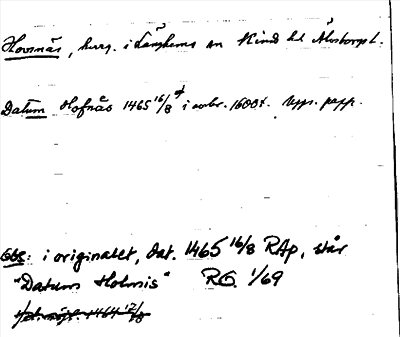 Hovsnäs, herrg. i Länghems sn Kind hd Älvsborgs l.
Datum Hofnäs 1465 16/8 i avskr. 1600t. Upps. papp.
Obs: i originalet, dat. 1465 16/8 RAp, står
"Datum Holmis" RO. 1/69
1464 12/8